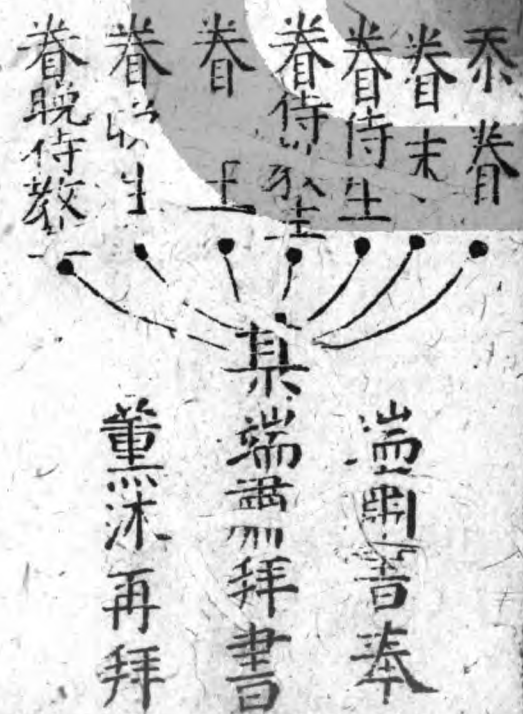 忝眷
眷末
眷侍生
眷侍教生
眷生
眷晚生
眷晚侍教
端肅書奉
某端肅拜書
薰沐再拜